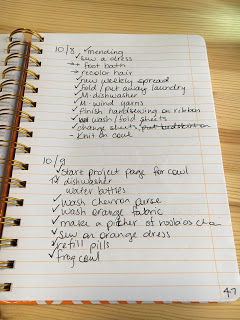 10/8 ✓mending
✓sew a dress
→ foot bath
→ recolor hair
✓new weekly spread
✓fold/put away laundry
✓M-dishwasher
✓M-wind yarns
✓finish handsewing on ribbon
✓wash/fold sheets
✓change sheets/put bedskirt on
- knit on cowl
10/9
✓start project page for cowl
dishwasher
water bottles
✓wash chevron purse
✓wash orange fabric
✓make a pitcher of rooibos chai
✓sew on orange dress
✓refill pills
✓frog cowl
47